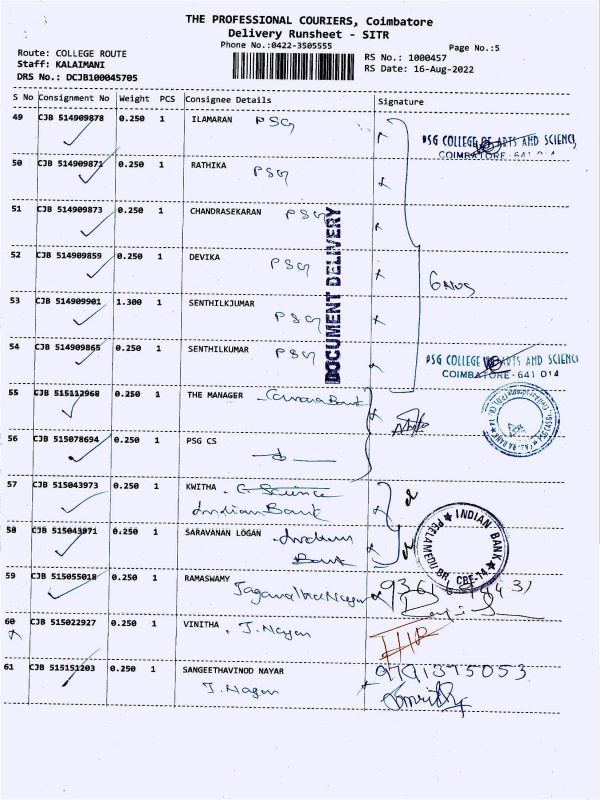 THE PROFESSIONAL COURIERS, Coimbatore
Delivery Runsheet - SITR
Phone No.:0422-3505555
Page No.:5
Route: COLLEGE ROUTE
Staff: KALAIMANI
DRS No.: DCJB100045705
RS No.: 1000457
RS Date: 16-Aug-2022
S No Consignment No Weight PCS Consignee Details Signature
49 CJB 514909878 0.250 1 ILAMARAN PSG
PSG COLLEGE OF ARTS AND SCIENC
COIMBATORE - 641 014
50 CJB 514909871 0.250 1 RATHIKA PSG
51 CJB 514909873 0.250 1 CHANDRASEKARAN PSG
DOCUMENT DELIVERY
52 CJB 514909859 0.250 1 DEVIKA PSG
6 NOS
53 CJB 514909901 1.300 1 SENTHILKJUMAR PSG
54 CJB 514909865 0.250 1 SENTHILKUMAR PSG
PSG COLLEGE OF ARTS AND SCIENC
COIMBATORE - 641 014
55 CJB 515112968 0.250 1 THE MANAGER Canara Bank
56 CJB 515078694 0.250 1 PSG CS
57 CJB 515043973 0.250 1 KWITHA
Indian Bank
58 CJB 515043971 0.250 1 SARAVANAN LOGAN Indian
Bank
INDIAN BANK
PEELAMEDU BR. CBE-14
59 CJB 515055018 0.250 1 RAMASWAMY
Jaganatha Nagar
60 CJB 515022927 0.250 1 VINITHA . J. Nagar
61 CJB 515151203 0.250 1 SANGEETHAVINOD NAYAR
J. Nagar
9791375053